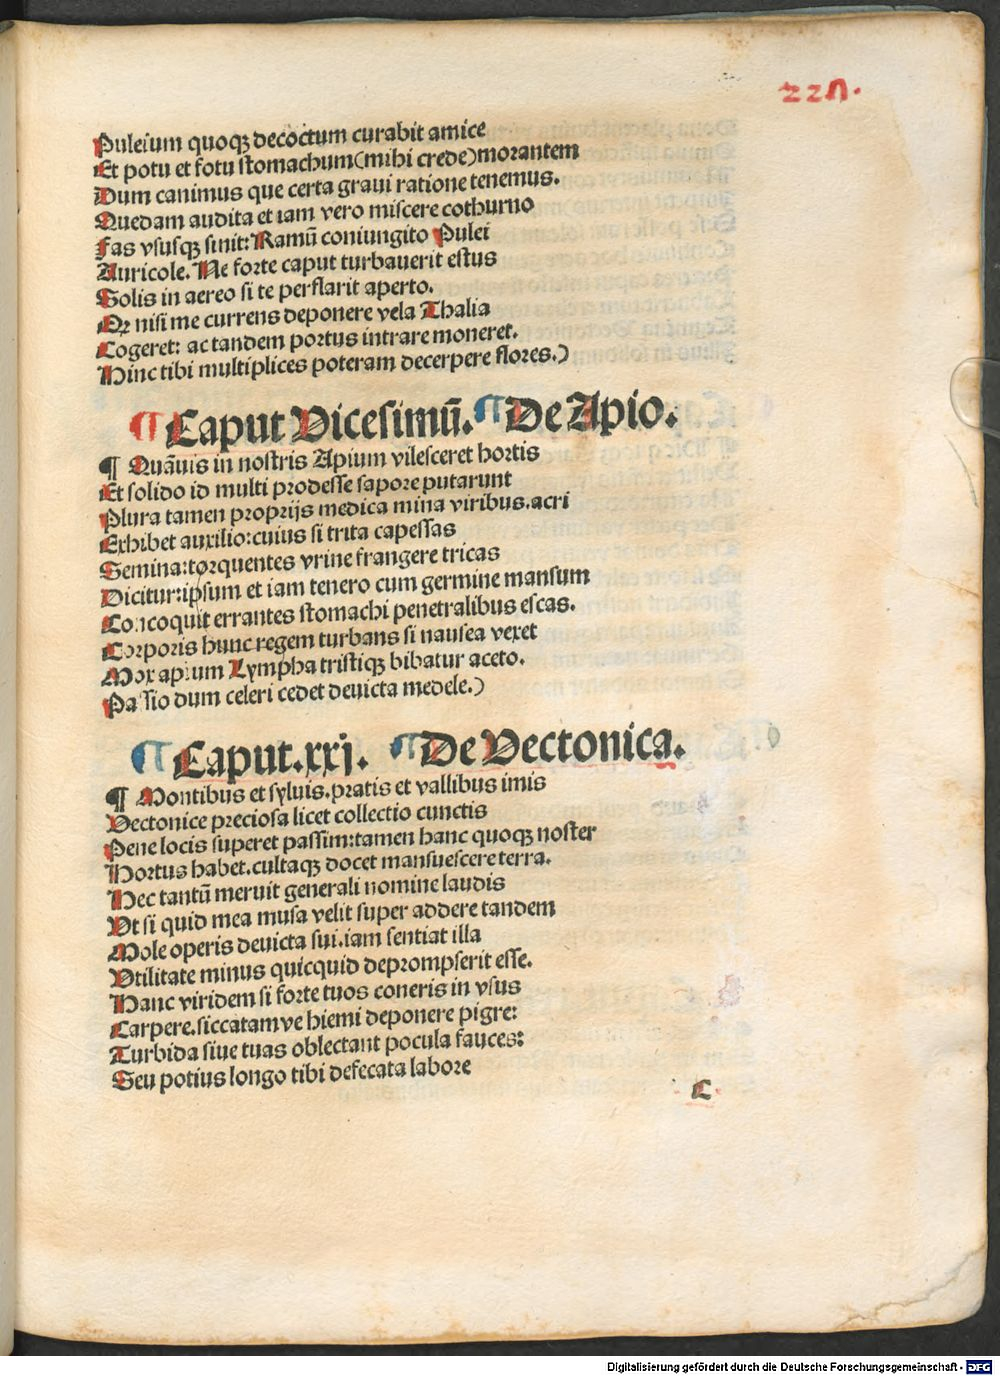 227.
Puleium quoqꝫ decoctum curabit amice
Et potu et fotu stomachum(mihi crede)morantem
Dum canimus que certa graui ratione tenemus.
Quedam audita et iam vero miscere cothurno
Fas vsusqꝫ sinit: Ramū coniungito Pulei
Auricole. Ne forte caput turbauerit estus
Solis in aereo si te perflarit aperto.
Qꝛ nisi me currens deponere vela Thalia
Cogeret: ac tandem portus intrare moneret.
Hinc tibi multiplices poteram decerpere flores.)
¶ Caput Vicesimū. ¶ De Apio.
¶ Quāuis in nostris Apium vilesceret hortis
Et solido id multi prodesse sapore putarunt
Plura tamen proprijs medica mina viribus.acri
Exhibet auxilio:cuius si trita capessas
Semina:torquentes vrine frangere tricas
Dicitur:ipsum et iam tenero cum germine mansum
Concoquit errantes stomachi penetralibus escas.
Corporis hunc regem turbans si nausea vexet
Mox apium Lympha tristiqꝫ bibatur aceto.
Passio dum celeri cedet deuicta medele.)
¶ Caput.xxj. ¶ De Vectonica.
¶ Montibus et syluis.pratis et vallibus imis
Vectonice preciosa licet collectio cunctis
Pene locis superet passim:tamen hanc quoqꝫ noster
Hortus habet.cultaqꝫ docet mansuescere terra.
Hec tantū meruit generali nomine laudis
Vt si quid mea musa velit super addere tandem
Mole operis deuicta sui.iam sentiat illa
Vtilitate minus quicquid deprompserit esse.
Hanc viridem si forte tuos coneris in vsus
Carpere.siccatamve hiemi deponere pigre:
Turbida siue tuas oblectant pocula fauces:
Seu potius longo tibi defecata labore
C
Digitalisierung gefördert durch die Deutsche Forschungsgemeinschaft - DFG